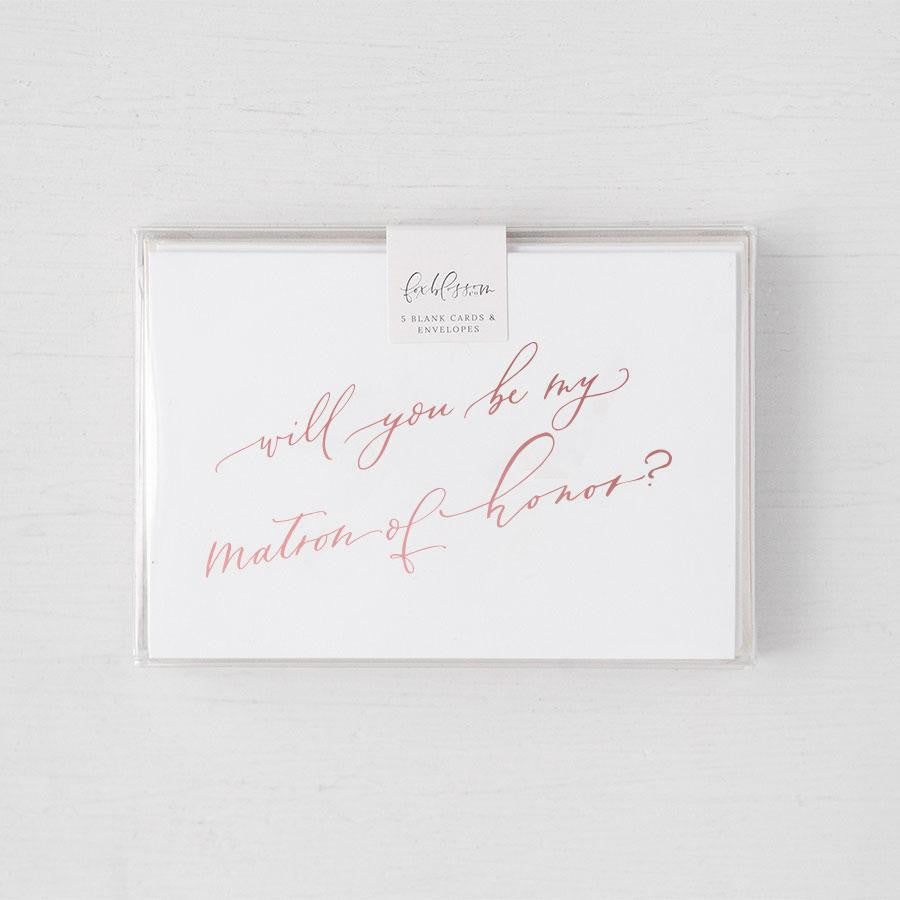 foxblossom
co
5 BLANK CARDS &
ENVELOPES
will you be my
matron of honor?